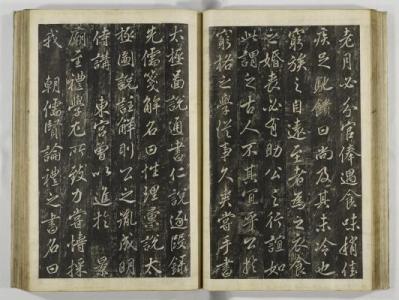 老月必分官俸遇食味稍佳
疾足馳饋曰尚及其未冷也
窮族之自遠至者遺之衣食
之婚喪必有助公之行誼如
此謂之古人不其宜乎公於
窮格之學從事久矣嘗手書
太極圖說通書仁說逐段錄
先儒箋解名曰性理彙說太
極圖說註解則公之胤成明
侍講 東宮曾以進於 景
廟至禮學尤所致力嘗博採
我 朝儒賢論禮之書名曰